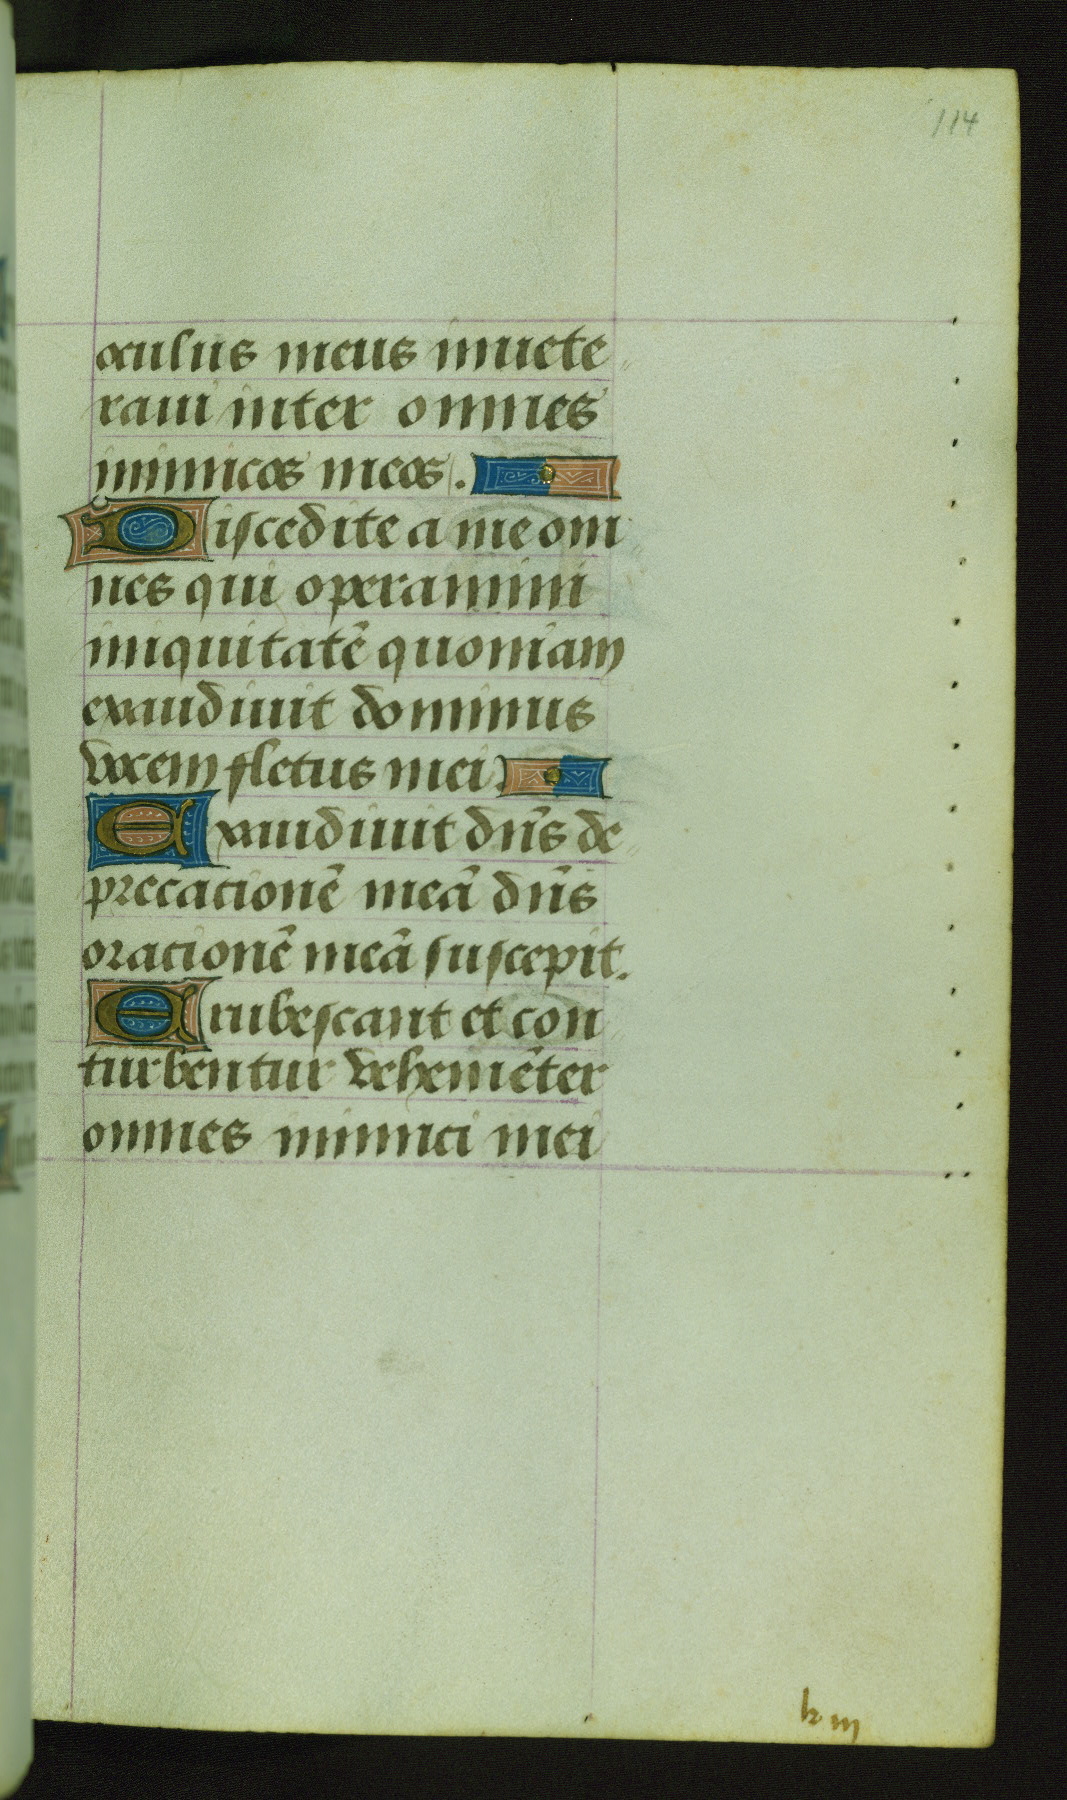 114
oculus meus inuete
raui inter omnes
inimicos meos.
Discedite a me om
nes qui operamini
iniquitatẽ quoniam
exaudiuit dominus
vocem fletus mei.
Exaudiuit dñs de
precationẽ meã dñs
orationẽ meã suscepit.
Erubescant et con
turbentur vehemẽter
omnes inimici mei